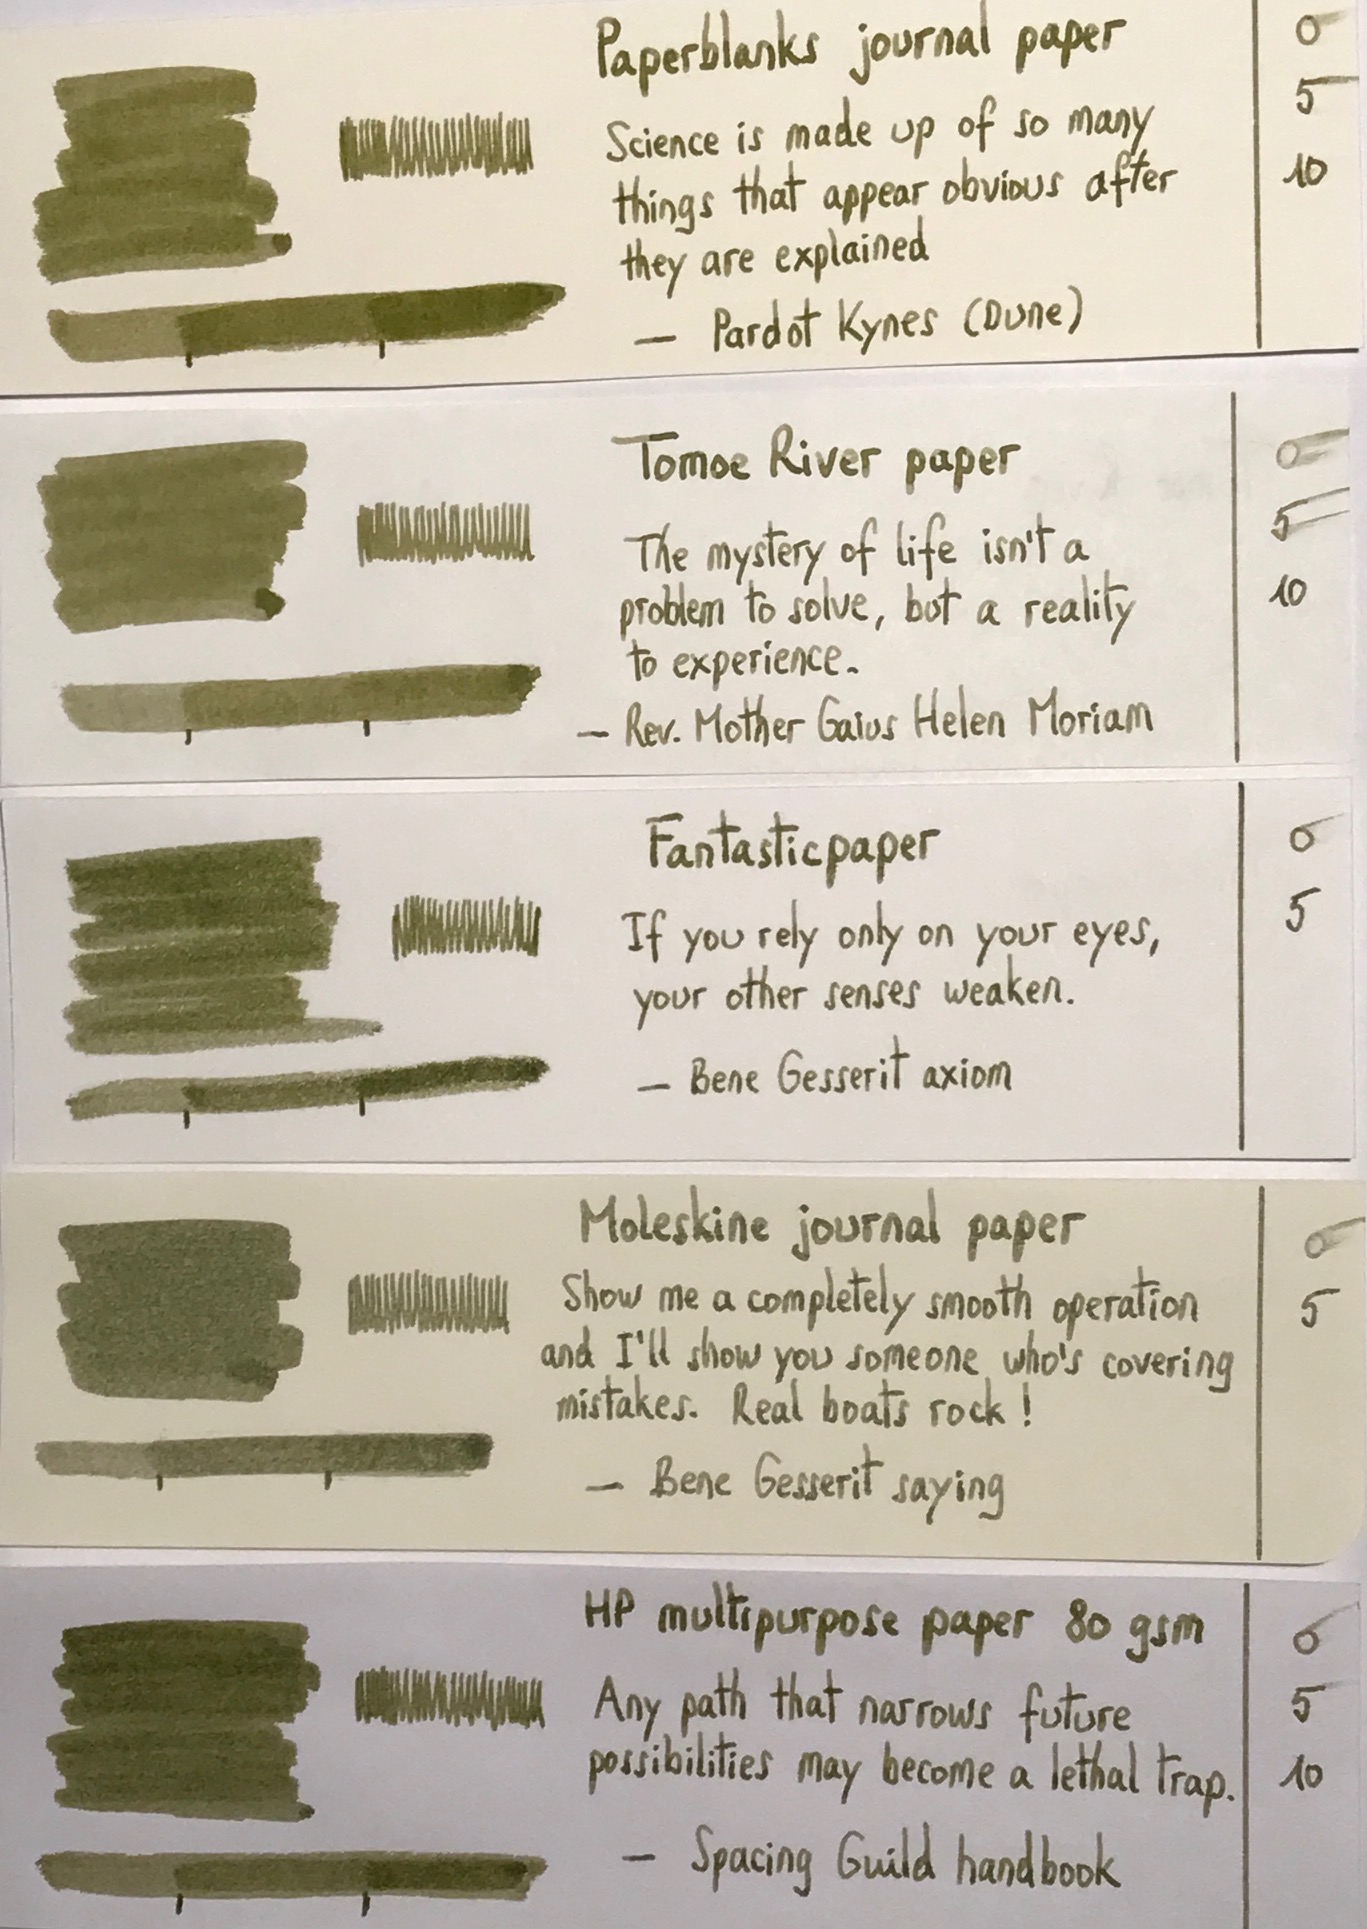 Paperblanks journal paper
Science is made up of so many
things that appear obvious after
they are explained
— Pardot Kynes (Dune)
0
5
10
Tomoe River paper
The mystery of life isn't a
problem to solve, but a reality
to experience.
— Rev. Mother Gaius Helen Moriam
0
5
10
Fantasticpaper
If you rely only on your eyes,
your other senses weaken.
— Bene Gesserit axiom
0
5
Moleskine journal paper
Show me a completely smooth operation
and I'll show you someone who's covering
mistakes. Real boats rock!
— Bene Gesserit saying
0
5
HP multipurpose paper 80 gsm
Any path that narrows future
possibilities may become a lethal trap.
— Spacing Guild handbook
0
5
10